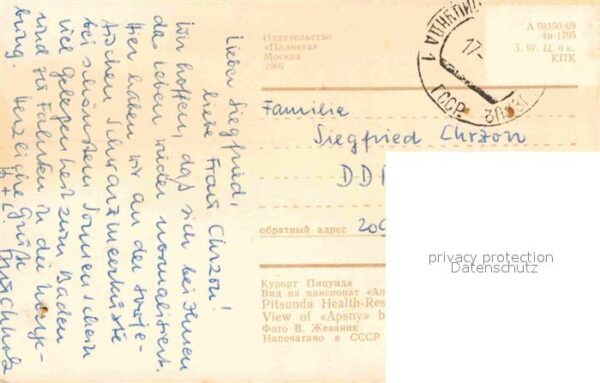 Lieber Siegfried,
liebe Frau Chrzon!
Wir hoffen, daß sich bei Ihnen
das Leben wieder normalisiert.
Hier haben wir an der sowje-
tischen Schwarzmeerküste
bei schönstem Sonnenschein
viel Gelegenheit zum Baden
und zu Fahrten in die Umge-
bung. Herzliche Grüße
Издательство
«Планета»
Москва
1969
А 08150-69
4а-1795
З. 97. Ц. 6 к.
КПК
17-
ГССР
Familie
Siegfried Chrzon
DD
обратный адрес 209
privacy protection
Datenschutz
Курорт Пицунда
Вид на пансионат «Ап
Pitsunda Health-Res
View of «Apsny» b
Фото В. Жеваник
Напечатано в СССР